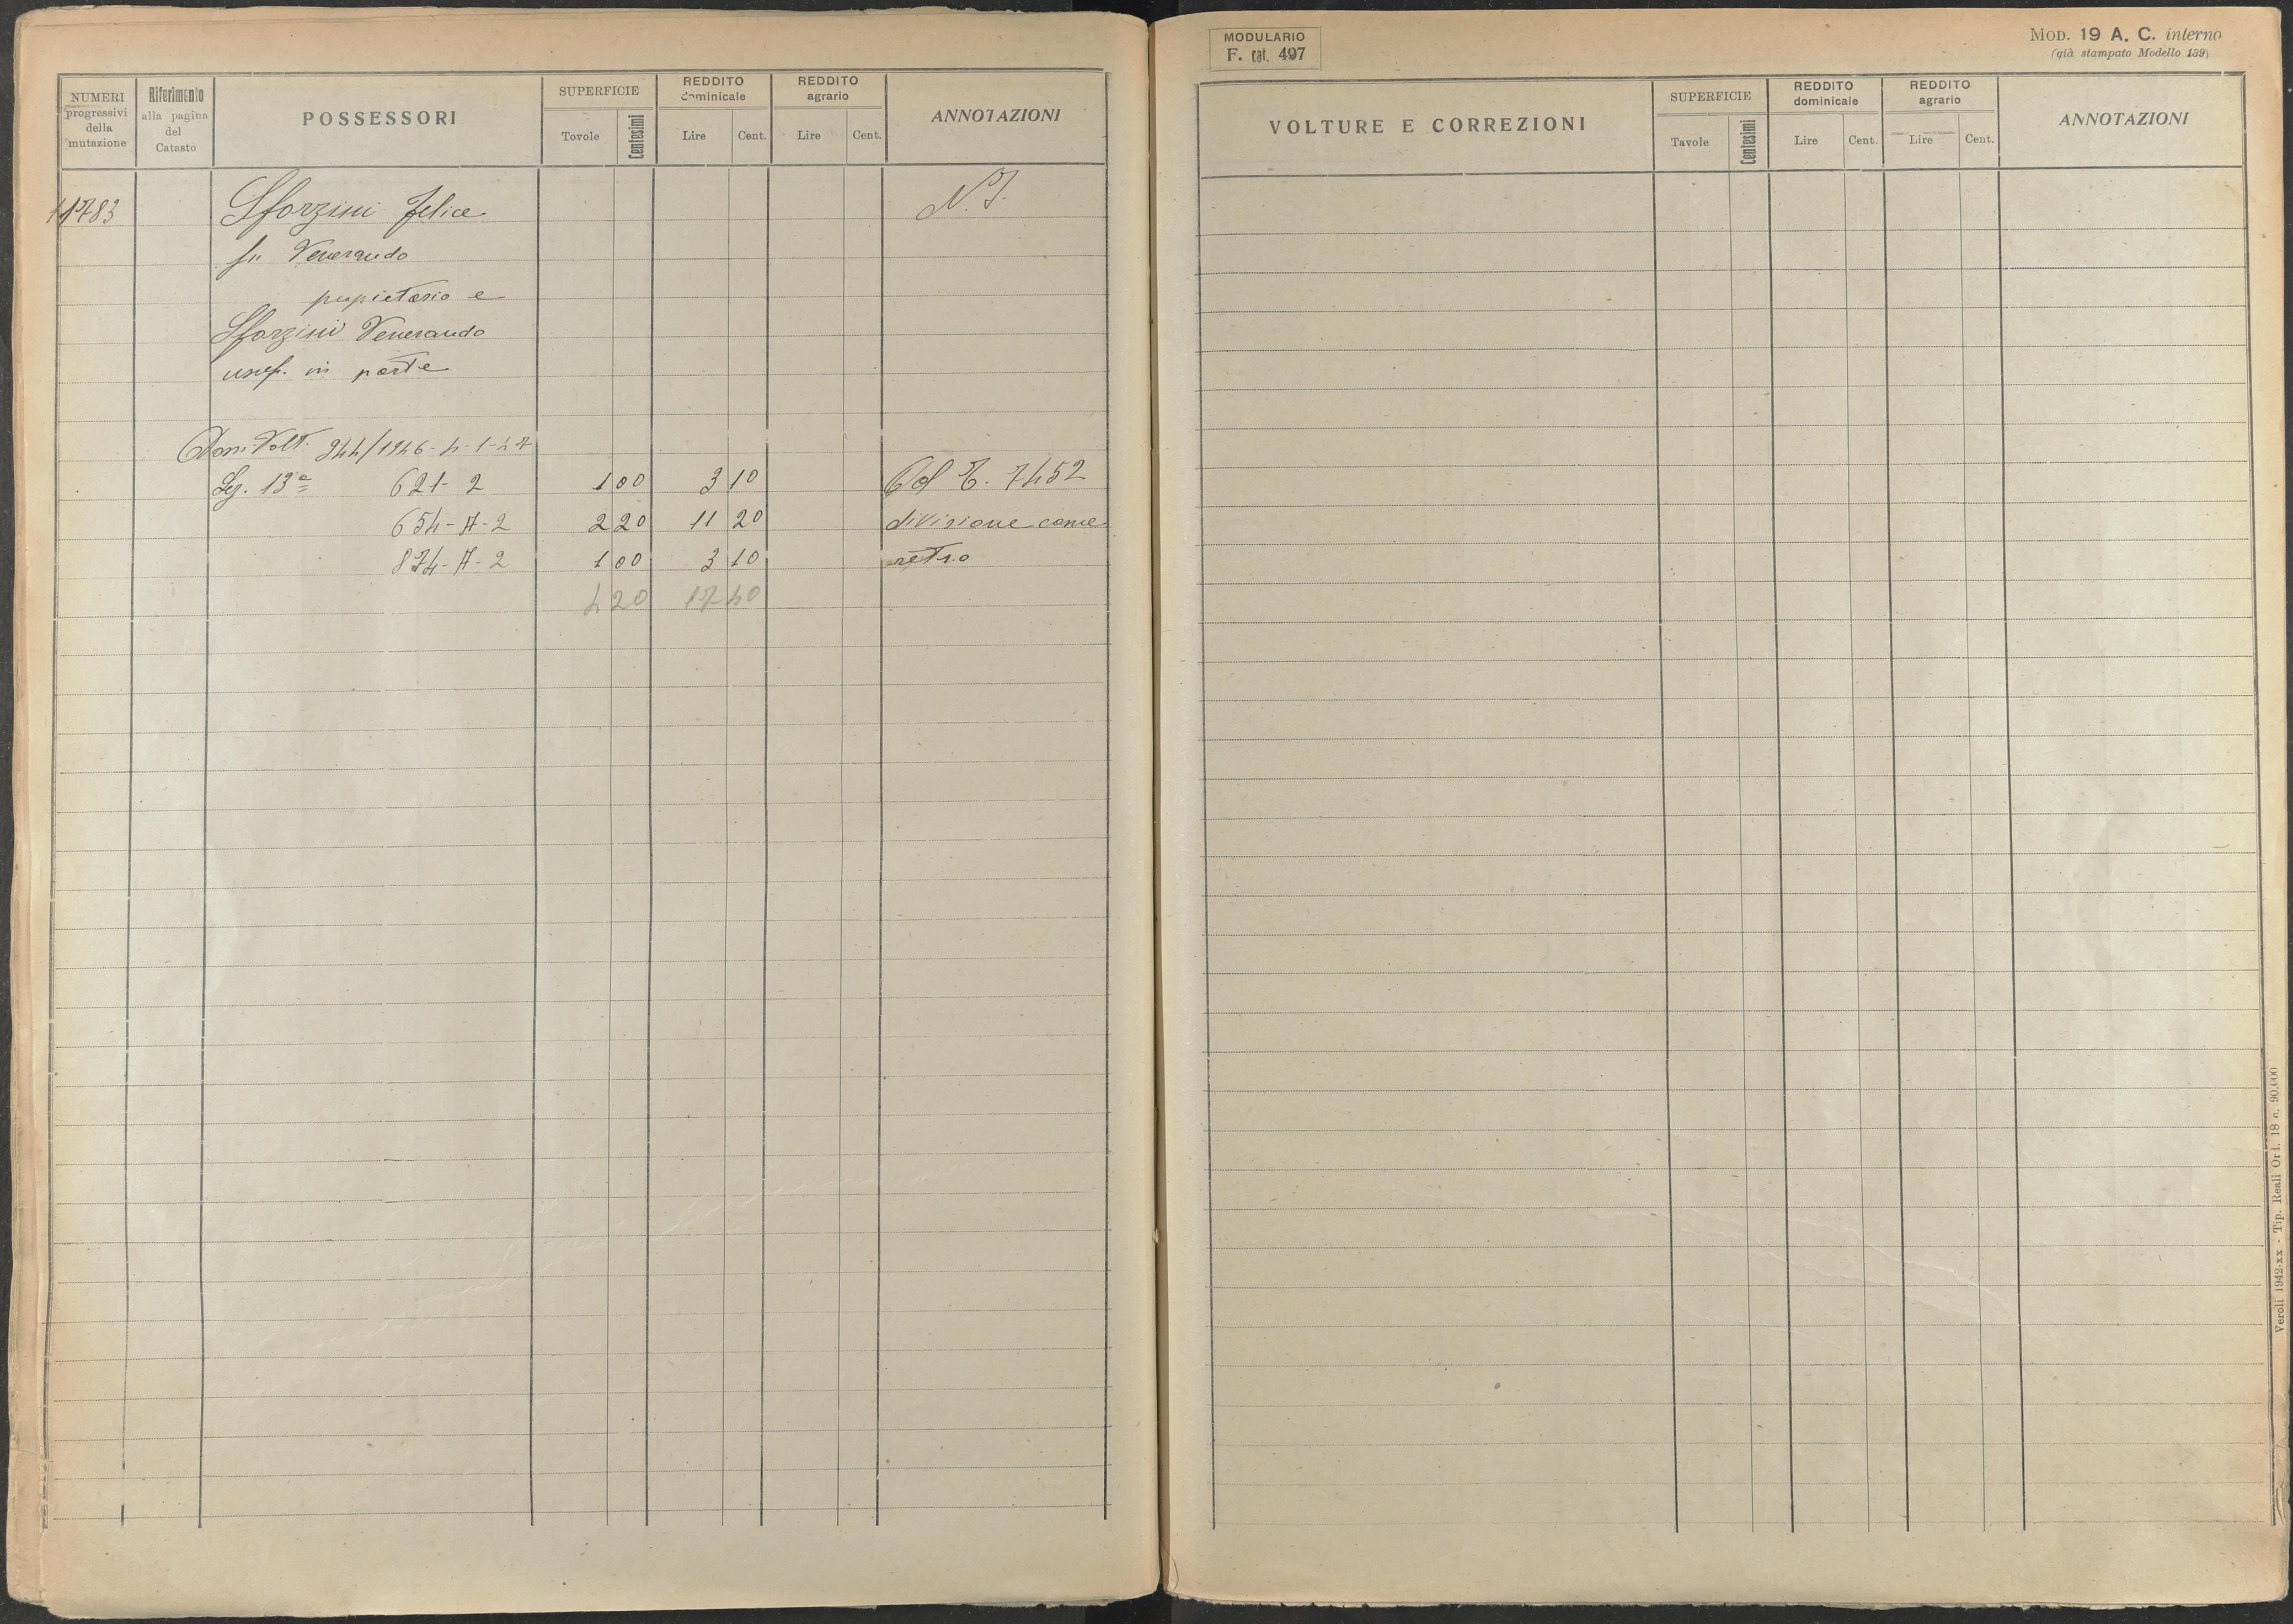 NUMERI
progressivi
della
mutazione
Riferimento
alla pagina
del
Catasto
POSSESSORI
SUPERFICIE
Tovole
Centesimi
REDDITO
dominicale
Lire
Cent.
REDDITO
agrario
Lire
Cent.
ANNOTAZIONI
11783
Sforzini Felice
N.I.
fu Venerando
propietario e
Sforzini Venerando
usuf. in parte
Dom. Volt. 944/1946-4-1-47
Sez. 13ª 621-2 1 00 3 10 Col T. 7452
654-A-2 2 20 11 20 divisione come
874-A-2 1 00 3 10 retro
4 20 17 40
MODULARIO
F. cat. 497
MOD. 19 A. C. interno
(già stampato Modello 139)
VOLTURE E CORREZIONI
SUPERFICIE
Tavole
Centesimi
REDDITO
dominicale
Lire
Cent.
REDDITO
agrario
Lire
Cent.
ANNOTAZIONI
Veroli 1942-xx - Tip. Reali Ord. 18 c. 90.000